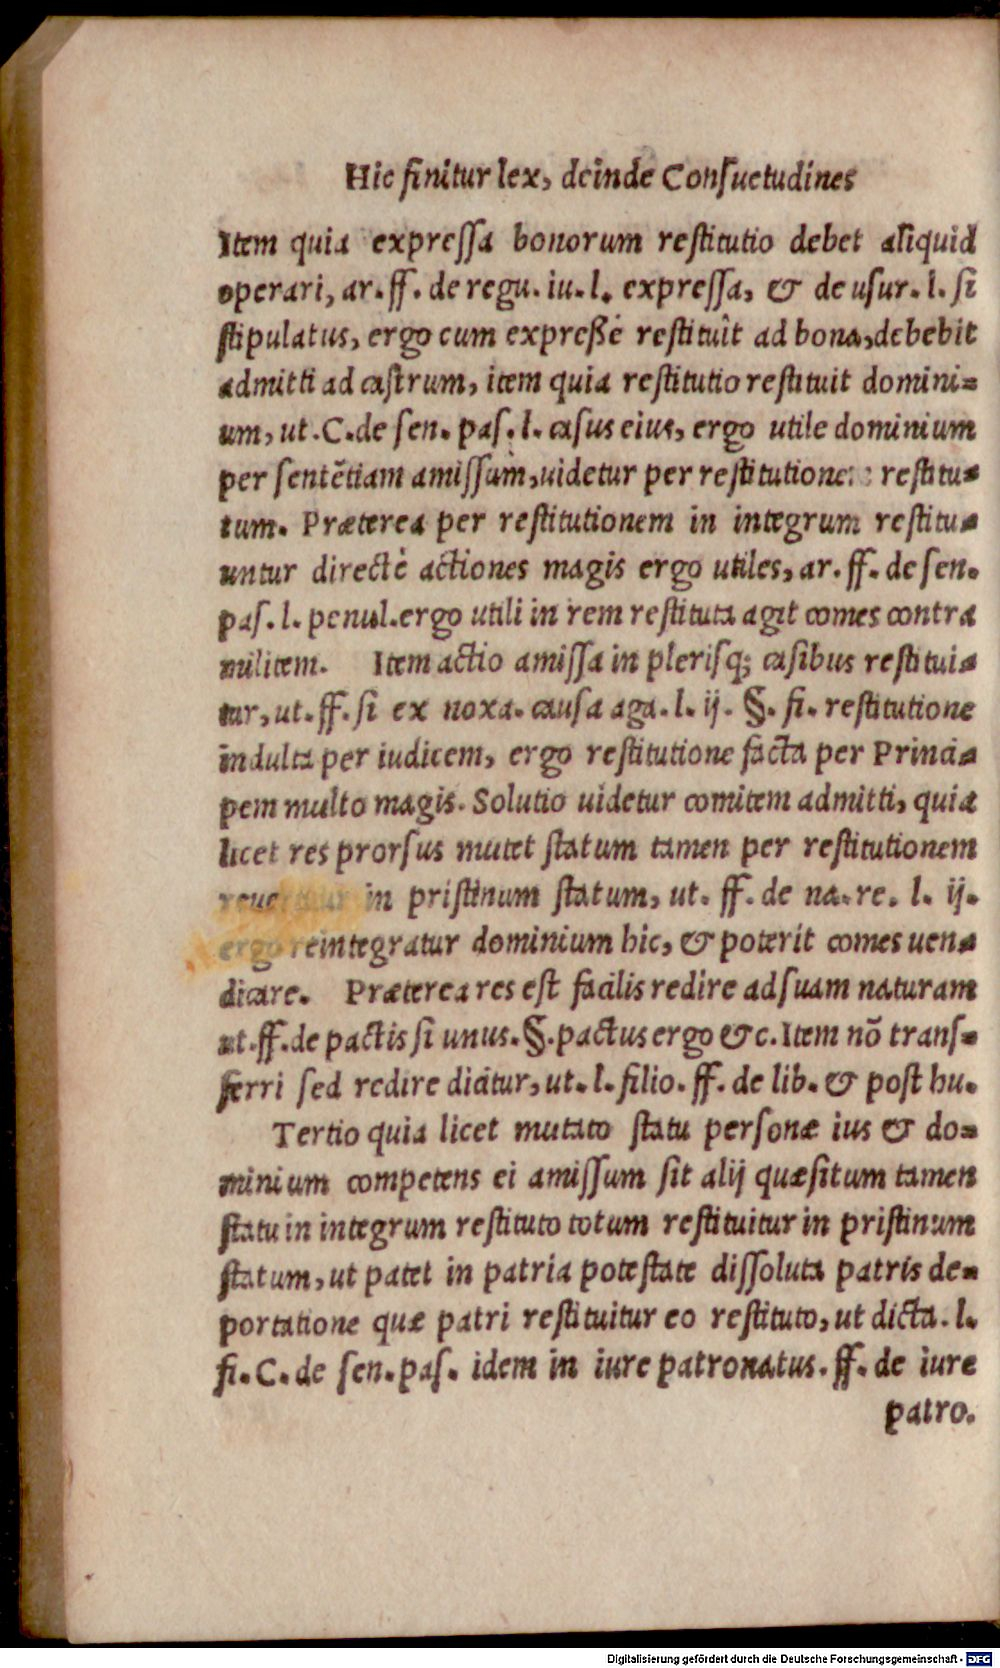 Hic finitur lex, deinde Consuetudines
Item quia expressa bonorum restitutio debet aliquid
operari, ar. ff. de regu. iu. l. expressa, & de usur. l. si
stipulatus, ergo cum expreßè restituit ad bona, debebit
admitti ad castrum, item quia restitutio restituit domini=
um, ut. C. de sen. pas. l. casus eius, ergo utile dominium
per sentētiam amissum, uidetur per restitutione restitu=
tum. Præterea per restitutionem in integrum restitu=
untur directè actiones magis ergo utiles, ar. ff. de sen.
pas. l. penul. ergo utili in rem restituta agit comes contra
militem. Item actio amissa in plerisq; casibus restitui=
tur, ut. ff. si ex noxa. causa aga. l. ij. §. fi. restitutione
indulta per iudicem, ergo restitutione facta per Princi=
pem multo magis. Solutio uidetur comitem admitti, quia
licet res prorsus mutet statum tamen per restitutionem
in pristinum statum, ut. ff. de na. re. l. ij.
ergo reintegratur dominium hic, & poterit comes uen=
dicare. Præterea res est facilis redire ad suam naturam
ut. ff. de pactis si unus. §. pactus ergo &c. Item nō trans=
ferri sed redire dicitur, ut. l. filio. ff. de lib. & post hu.
Tertio quia licet mutato statu personæ ius & do=
minium competens ei amissum sit alij quæsitum tamen
statu in integrum restituto totum restituitur in pristinum
statum, ut patet in patria potestate dissoluta patris de=
portatione quæ patri restituitur eo restituto, ut dicta. l.
fi. C. de sen. pas. idem in iure patronatus. ff. de iure
patro.
Digitalisierung gefördert durch die Deutsche Forschungsgemeinschaft - DFG